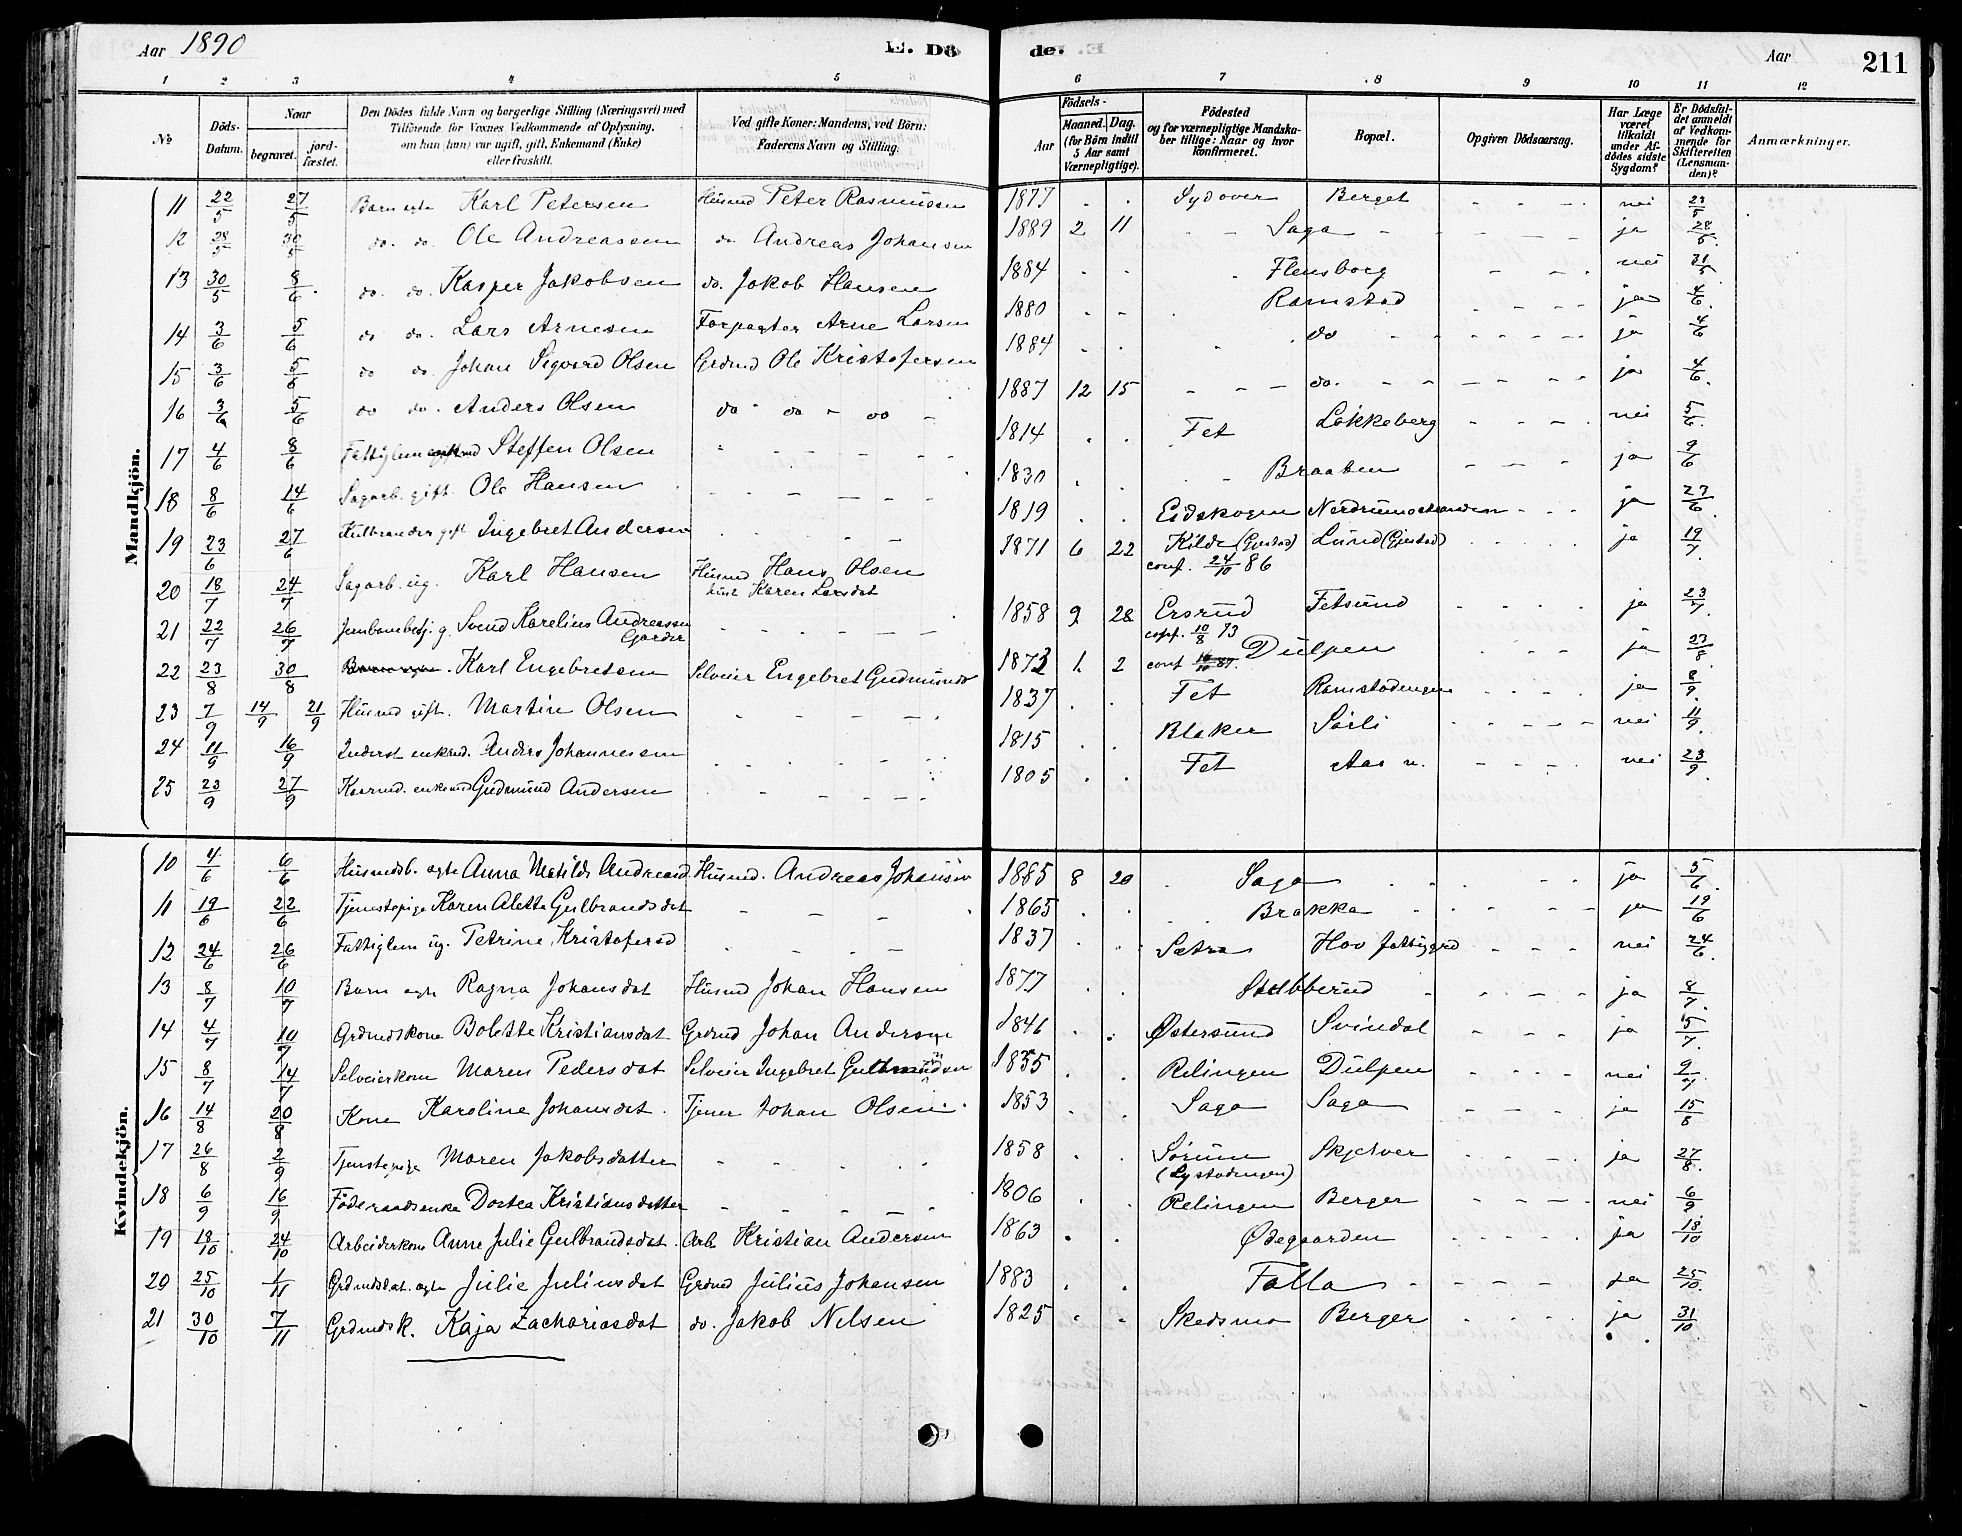 Aar 1890
E. Dö
de.
Aar
211
1 2 3 4 5 6 7 8 9 10 11 12
№
Döds-Datum.
Naar
begravet.
jord-fæstet.
Den Dödes fulde Navn og borgerlige Stilling (Næringsvei) med
Tilföiende for Voxnes Vedkommende af Oplysning,
om han (hun) var ugift, gift, Enkemand (Enke)
eller fraskilt.
Ved gifte Koner: Mandens, ved Börn:
Faderens Navn og Stilling.
Födsels-
Aar
Maaned. Dag.
(for Börn indtil
5 Aar samt
Værnepligtige).
Födested
og for værnepligtige Mandska-
ber tillige: Naar og hvor
konfirmeret.
Bopæl.
Opgiven Dödsaarsag.
Har Læge
været
tilkaldt
under Af-
dödes sidste
Sygdom?
Er Dödsfal-
det anmeldt
af Vedkom-
mende for
Skifteretten
(Lensman-
den)?
Anmærkninger.
Mandkjön.
11 22/5 27/5 Barn egte Karl Petersen Husmd Peter Rasmussen 1877 . . Sydover Berget - - - nei 23/5
12 28/5 30/5 do. do. Ole Andreassen do Andreas Johansen 1889 2 11 - - Saga - - - - ja 28/5
13 30/5 8/6 do. do. Kasper Jakobsen do. Jakob Hansen 1884 . . Flensborg - - nei 31/5
14 3/6 5/6 do do. Lars Arnesen Forpagter Arne Larsen 1880 - - Ramstad - - - - ja 4/6
15 3/6 5/6 do do. Johan Sigvard Olsen Grdmd Ole Kristofersen 1884 . . do - - - - ja 4/6
16 3/6 5/6 do do. Anders Olsen do - do - do - 1887 12 15 - - - do. - - - - ja 4/6
17 4/6 8/6 Fattiglem Steffen Olsen - - - - 1814 . . Fet Løkkeberg - - - - nei 5/6
18 8/6 14/6 Sagarb. gift. Ole Hansen - - - - 1830 . . Braaten - - - ja 9/6
19 23/6 27/6 Kulbrander gift Ingebret Andersen - - - - 1819 . . Eidskogen Nerdrumstranden - - - ja 27/6
20 18/7 24/7 Sagarb. ug. Karl Hansen Husmd Hans Olsen 1871 6 22 Kilde (Gjestad) Lund (Gjestad) - - - - ja 19/7
hust Karen Larsdat conf. 24/10 86
21 22/7 26/7 Jernbanebetj. g. Svend Karelius Andreassen - - - - 1858 9 28 Ersrud Fetsund - - - - ja 23/7
Garder copf. 10/8 73
22 23/8 30/8 Barn egte Karl Engebretsen Selveier Engebret Gudmunds 1873 1. 2 conf 16/10 87. Dulpen - - - ja 23/8
23 7/9 14/9 21/9 Husmd gift. Martin Olsen - - - - 1837 . . Fet Ramstadengen - - - - ja 8/9
24 11/9 16/9 Inderst enkmd. Anders Johannessen - - - - 1815 . . Blaker Sörli - - - - nei 11/9
25 23/9 27/9 Kaarmd. enkemd Gudmund Andersen - - - - 1805 . . Fet Aas n. - - - - nei 23/9
Kvindekjön.
10 4/6 6/6 Husmdsb. egte Anna Matilde Andreasd. Husmd. Andreas Johansen 1885 8 20 . Saga - - - - ja 5/6
11 19/6 22/6 Tjenestepige Karen Alette Gulbrandsdat - - - 1865 . . Brakka - - - - ja 19/6
12 24/6 26/6 Fattiglem ug. Petrine Kristofersd - - - 1837 . . Sætra Hov fattiggrd - - - nei 24/6
13 8/7 10/7 Barn egte Ragna Johansdat Husmd Johan Hansen 1877 . . Stubberud - - - - ja 8/7
14 4/7 10/7 Grdmdskone Bolette Kristiansdat Grdmd Johan Andersen 1846 . . Østersund Svindal - - - ja 5/7
15 8/7 14/7 Selveierkone Maren Pedersdat Selveier Ingebret Gudmundsen 1835 . . Relingen Dulpen - - - - nei 9/7
16 14/8 20/8 Kone Karoline Johansdat. Tjener Johan Olsen. 1853 . . Saga Saga - - - - ja 15/8
17 26/8 2/9 Tjenstepige Maren Jakobsdatter - - - - 1858 . . Sørum Skjetver - - - - ja 27/8
(Lystadengen)
18 6/9 16/9 Föderaadsenke Dortea Kristiansdatter - - - - 1806 . . Relingen Berger - - - - nei 6/9
19 18/10 24/10 Arbeiderkone Anne Julie Gulbrandsdat. Arb. Kristian Andersen 1863 . . Ødegaarden - - - - ja 18/10
20 25/10 1/11 Grdmdsdat. egte Julie Juliusdat Grdmd Julius Johansen 1883 . . Falla - - - - ja 25/10
21 30/10 7/11 Grdmdsk. Kaja Zachariasdat do. Jakob Nilsen 1825 . . Skedsmo Berger - - - - ja 31/10